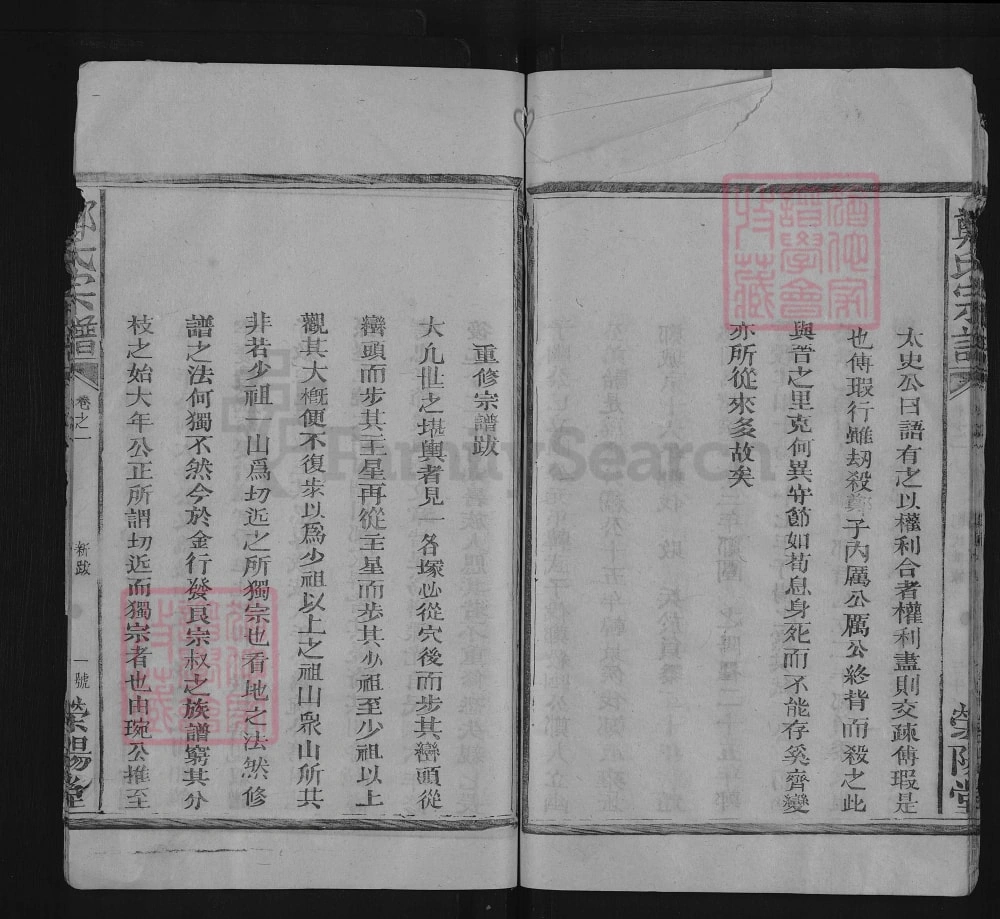 鄭氏宗譜
榮陽堂
太史公曰語有之以權利合者權利盡則交疎傅瑕是
也傅瑕行雖刼殺鄭子內厲公厲公終背而殺之此
與晉之里克何異守節如荀息身死而不能存奚齊變
亦所從來多故矣
重修宗譜跋
大凢世之堪輿者見一各塚必從穴後而步其巒頭從
巒頭而步其主星再從主星而步其少祖至少祖以上
觀其大槪便不復步以爲少祖以上之祖山衆山所共
非若少祖 山爲切近之所獨宗也看地之法然修
譜之法何獨不然今於金行發良宗叔之族譜窮其分
枝之始大年公正所謂切近而獨宗者也由琬公推至
鄭氏宗譜
卷之一
新跋
一號
榮陽堂
FamilySearch